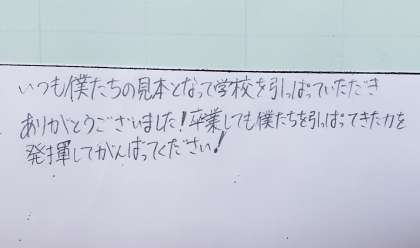 いつも僕たちの見本となって学校を引っぱっていただき
ありがとうございました!卒業しても僕たちを引っぱってきた力を
発揮してがんばってください!